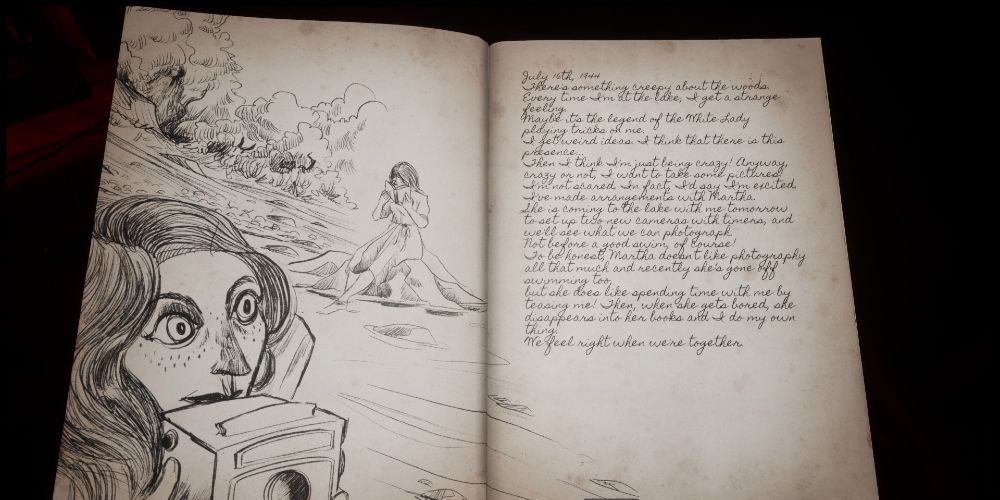 July 16th, 1944
There's something creepy about the woods.
Every time I'm at the lake, I get a strange
feeling.
Maybe it's the legend of the White Lady
playing tricks on me.
I get weird ideas. I think that there is this
presence...
Then I think I'm just being crazy! Anyway,
crazy or not, I want to take some pictures!
I'm not scared. In fact, I'd say I'm excited.
I've made arrangements with Martha.
She is coming to the lake with me tomorrow
to set up two new cameras with timers, and
we'll see what we can photograph.
Not before a good swim, of course!
To be honest, Martha doesn't like photography
all that much and recently she's gone off
swimming too,
but she does like spending time with me by
teasing me! Then, when she gets bored, she
disappears into her books and I do my own
thing.
We feel right when we're together.